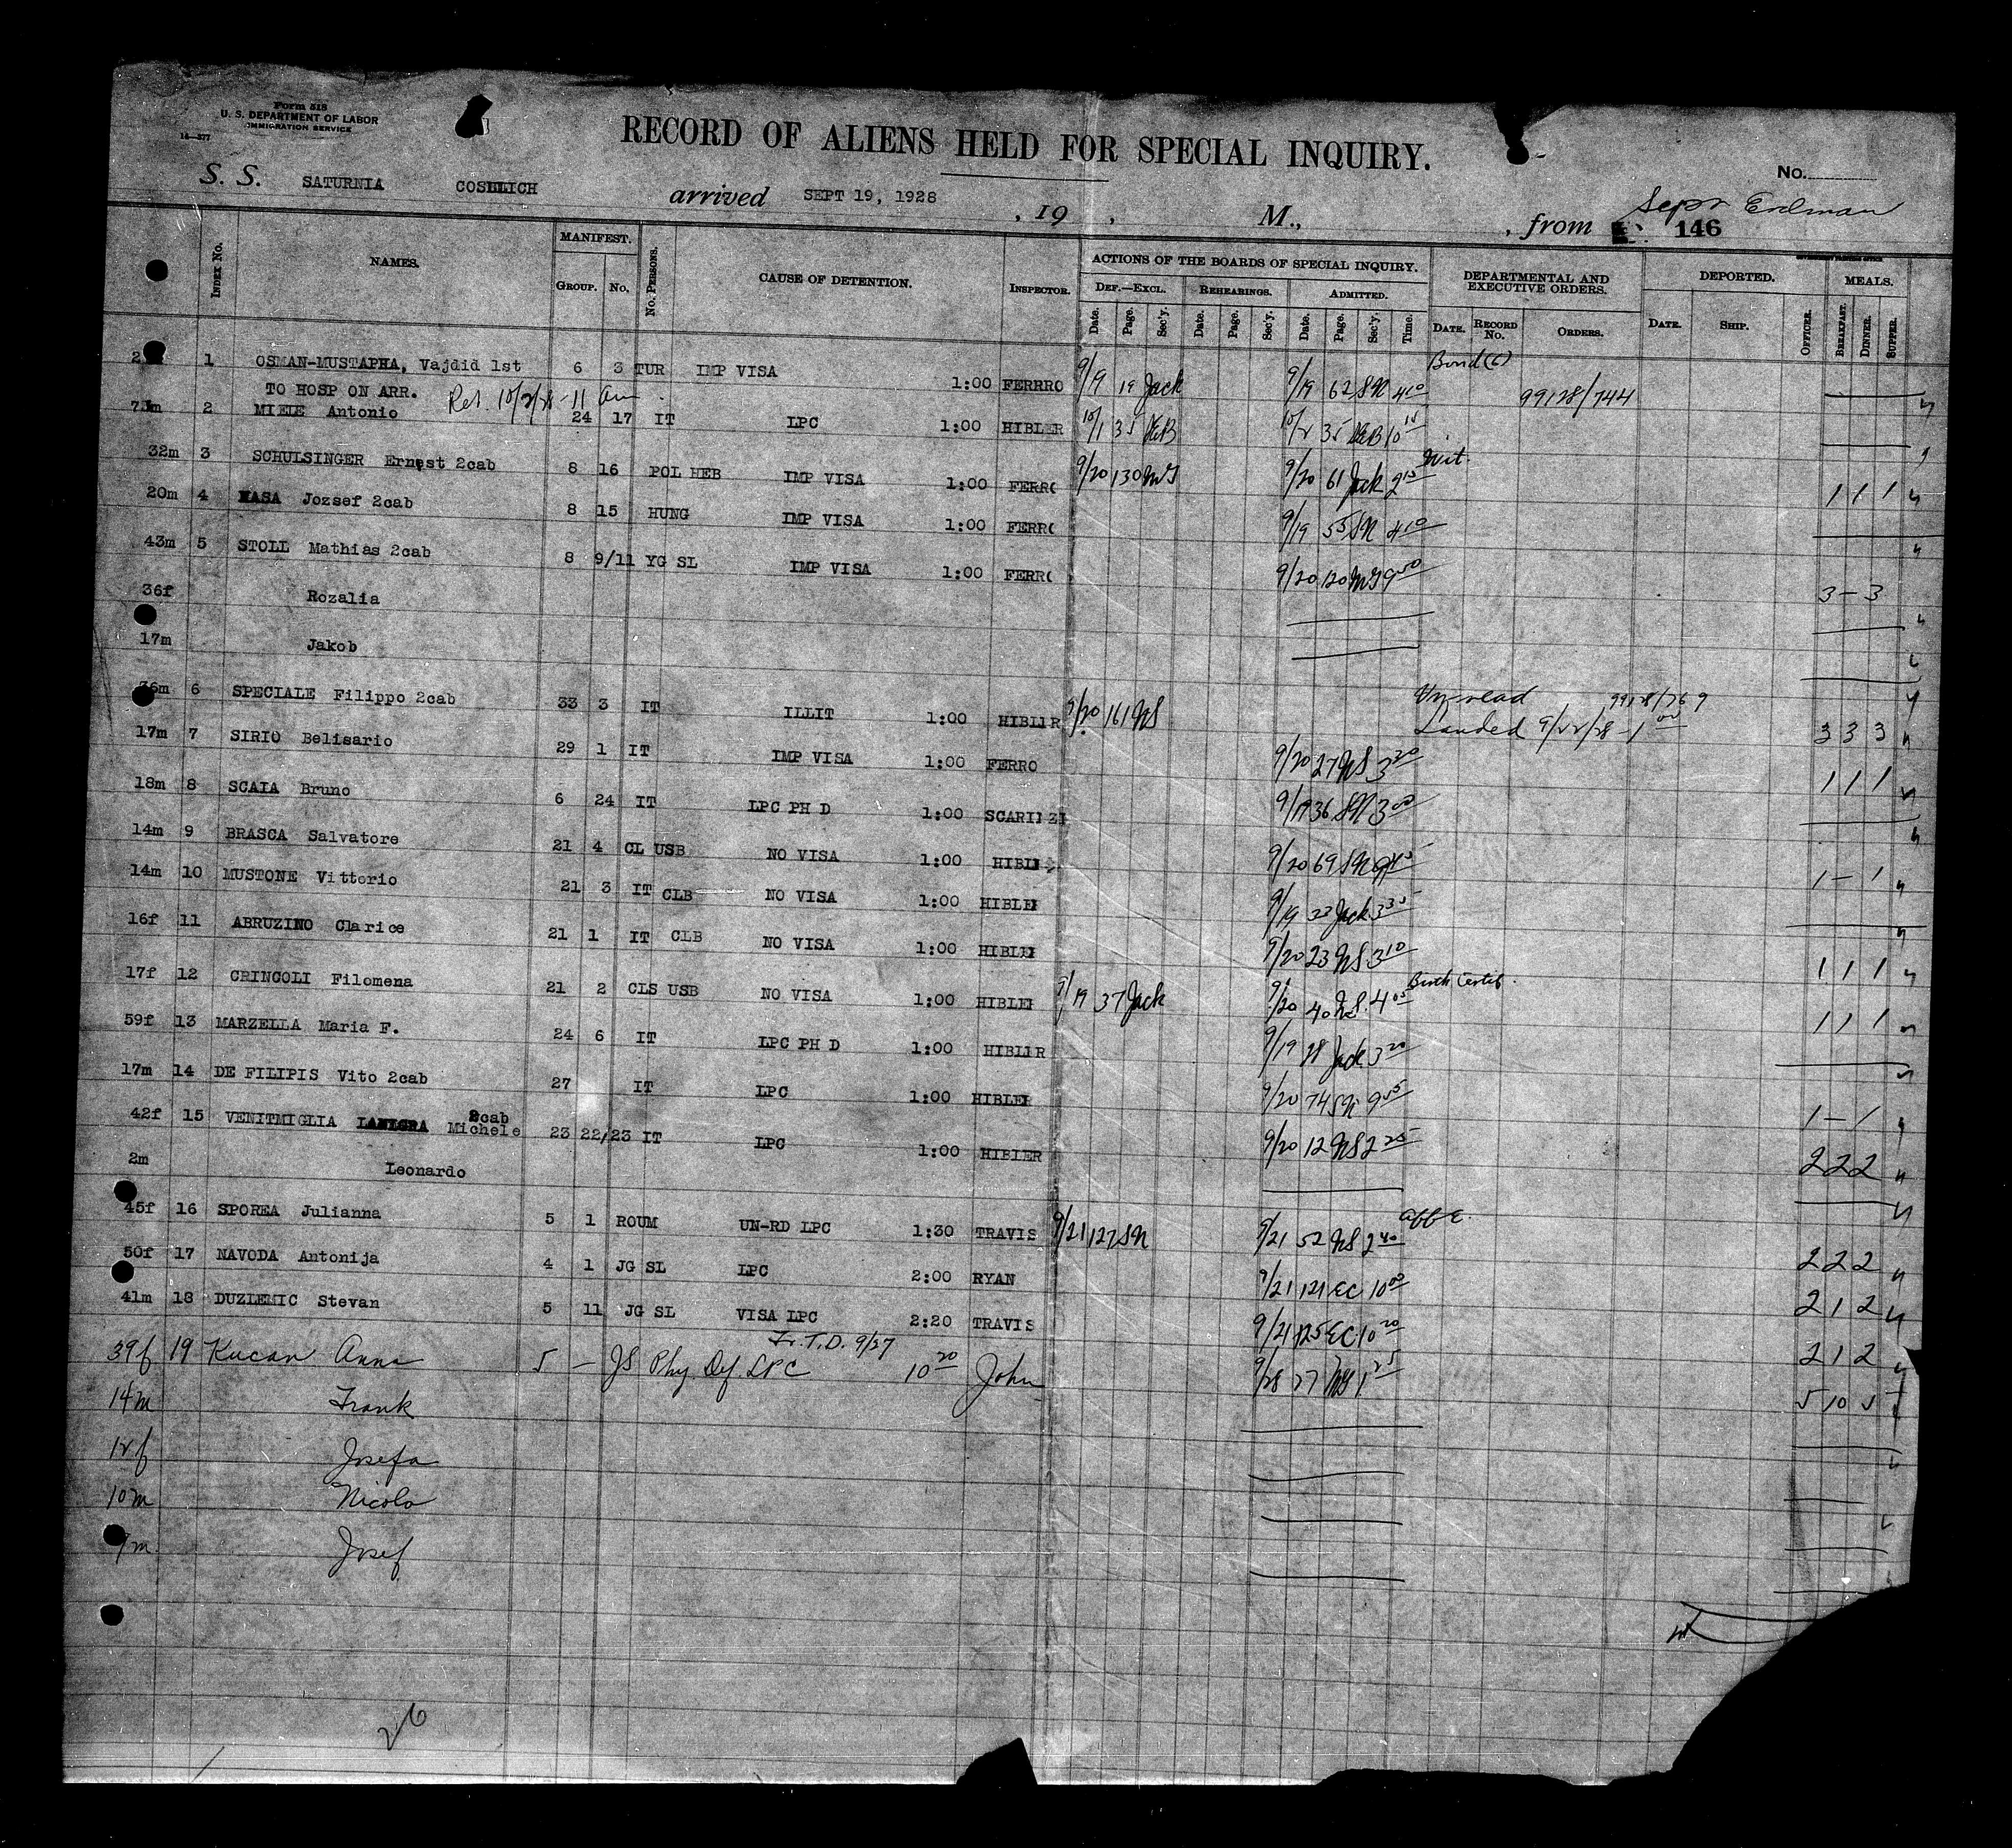 Form 518
U. S. DEPARTMENT OF LABOR
IMMIGRATION SERVICE
14—377
RECORD OF ALIENS HELD FOR SPECIAL INQUIRY.
No.
S. S. SATURNIA COSULICH arrived SEPT 19, 1928 , 19 , M., , from Erdman
146
Index No. NAMES. MANIFEST. No. Persons. CAUSE OF DETENTION. Inspector. ACTIONS OF THE BOARDS OF SPECIAL INQUIRY. DEPARTMENTAL AND EXECUTIVE ORDERS. DEPORTED. MEALS.
Group. No. Def.—Excl. Rehearings. Admitted.
Date. Page. Sec'y. Date. Page. Sec'y. Date. Page. Sec'y. Time. Date. Record No. Orders. Date. Ship. Officer. Breakfast. Dinner. Supper.
1 OSMAN-MUSTAPHA, Vajdid 1st 6 3 TUR IMP VISA 1:00 FERRRO 9/19 19 Jack 9/19 62 SN 4 10 Bond (C) 99128/744
TO HOSP ON ARR. Rel. 10/2/28 - 11 am
2 MIELE Antonio 24 17 IT LPC 1:00 HIBLER 10/1 35 10/2 35 10 15
32m 3 SCHULSINGER Ernest 2cab 8 16 POL HEB IMP VISA 1:00 FERRO 9/20 130 9/20 61 Jack 2 15 Wit. 1 1 1
20m 4 HASA Jozsef 2cab 8 15 HUNG IMP VISA 1:00 FERRO 9/19 55 SN 4 10
43m 5 STOLL Mathias 2cab 8 9/11 YG SL IMP VISA 1:00 FERRO 9/20 120 9 50 3 - 3
36f Rozalia
17m Jakob
36m 6 SPECIALE Filippo 2cab 33 3 IT ILLIT 1:00 HIBLER 9/20 161 NS Un-read 99128/769
Landed 9/22/28 - 1 00 3 3 3
17m 7 SIRIO Belisario 29 1 IT IMP VISA 1:00 FERRO 9/20 27 NS 3 20 1 1 1
18m 8 SCAIA Bruno 6 24 IT LPC PH D 1:00 9/19 36 SN 3 00
14m 9 BRASCA Salvatore 21 4 CL USB NO VISA 1:00 HIBLER 9/20 69 SN 1 - 1
14m 10 MUSTONE Vittorio 21 3 IT CLB NO VISA 1:00 HIBLER 9/19 Jack 3 35
16f 11 ABRUZINO Clarice 21 1 IT CLB NO VISA 1:00 HIBLER 9/20 23 NS 3 10 1 1 1
17f 12 CRINCOLI Filomena 21 2 CLS USB NO VISA 1:00 HIBLER 9/19 37 Jack 9/20 40 NS 4 05 Birth Certif. 1 1 1
59f 13 MARZELLA Maria F. 24 6 IT LPC PH D 1:00 HIBLER 9/19 Jack 3 20
17m 14 DE FILIPIS Vito 2cab 27 IT LPC 1:00 HIBLER 9/20 74 SN 9 55 1 - 1
42f 15 VENITMIGLIA Michele 2cab 23 22/23 IT LPC 1:00 HIBLER 9/20 12 NS 2 25 2 2 2
2m Leonardo
45f 16 SPOREA Julianna 5 1 ROUM UN-RD LPC 1:30 TRAVIS 9/21 127 SN 9/21 52 NS 2 40 2 2 2
50f 17 NAVODA Antonija 4 1 JG SL LPC 2:00 RYAN 9/21 121 EC 10 00 2 1 2
41m 18 DUZLEMIC Stevan 5 11 JG SL VISA LPC 2:20 TRAVIS 9/21 125 EC 10 20 2 1 2
Fr. T.D. 9/27
39f 19 Kucan Anna 5 — JS Phy. Def. LPC 10 20 John 9/28 27 1 25 5 10 5
14m Frank
12f Josefa
10m Nicola
9m Josef
26